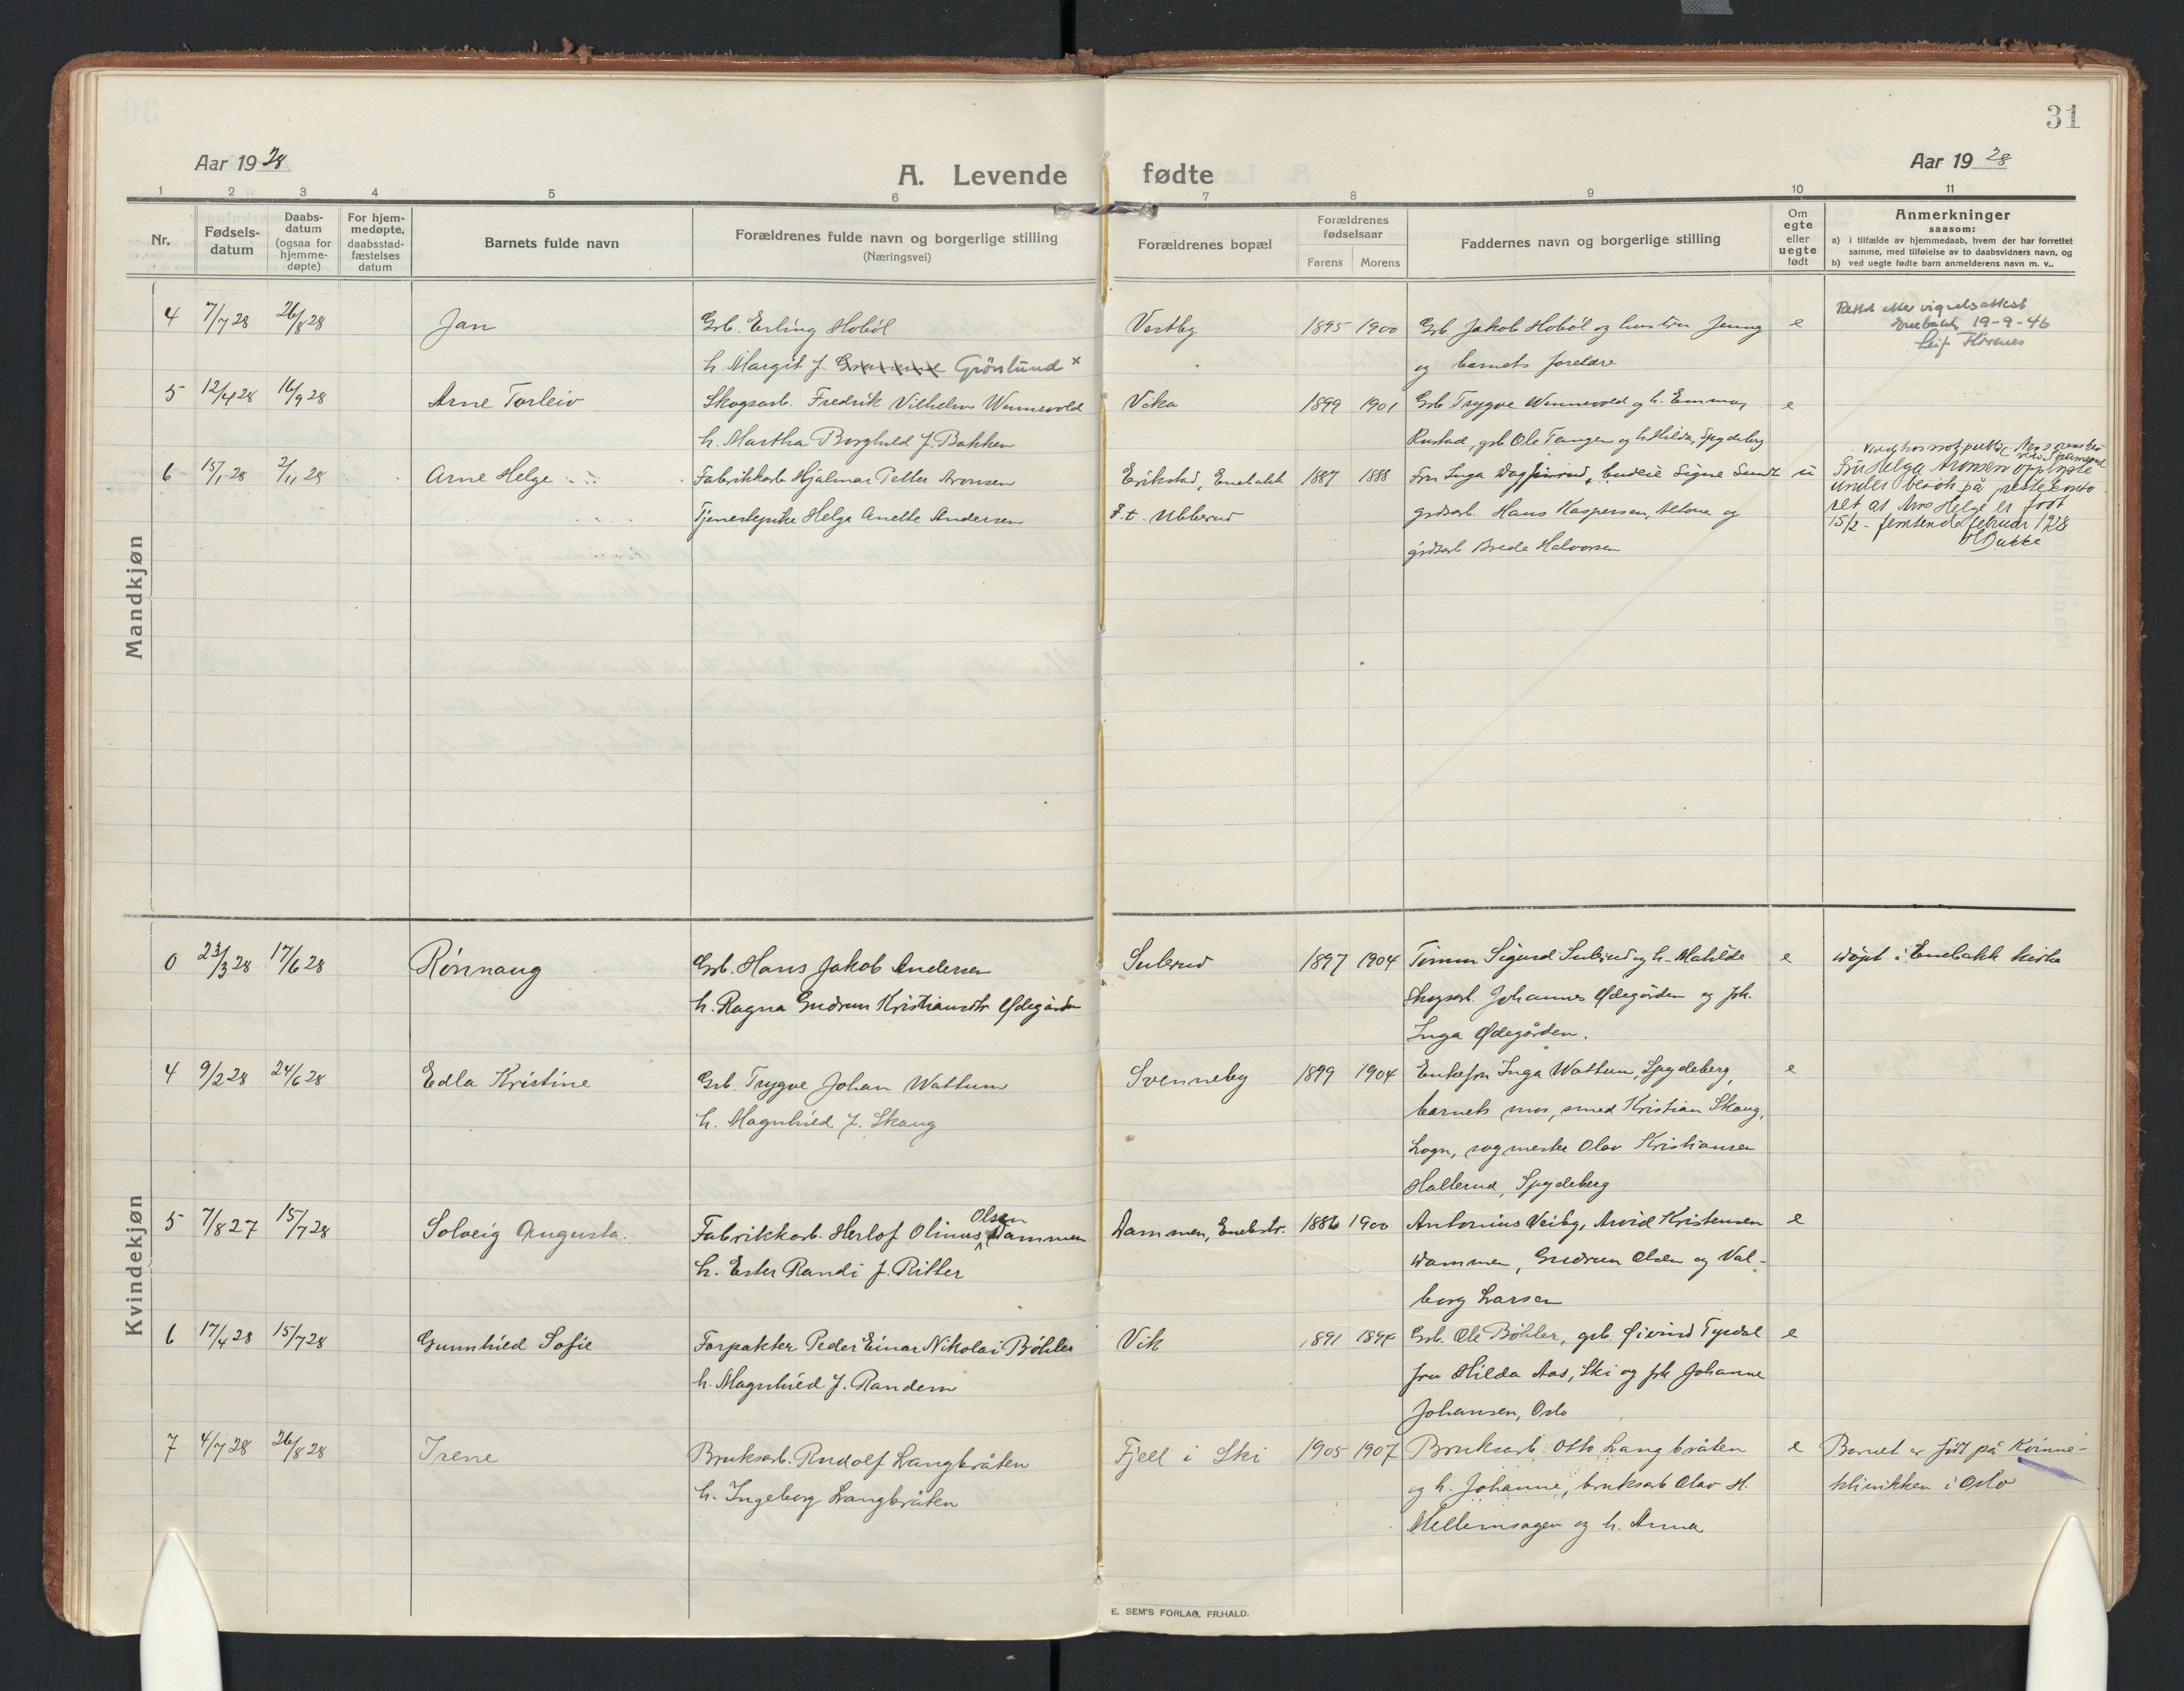 31
Aar 1928
A. Levende fødte
Aar 1928
1 2 3 4 5 6 7 8 9 10 11
Nr.
Fødsels-
datum
Daabs-
datum
(ogsaa for
hjemme-
døpte)
For hjem-
medøpte,
daabsstad-
fæstelses
datum
Barnets fulde navn
Forældrenes fulde navn og borgerlige stilling
(Næringsvei)
Forældrenes bopæl
Forældrenes
fødselsaar
Farens Morens
Faddernes navn og borgerlige stilling
Om
egte
eller
uegte
født
Anmerkninger
saasom:
a) i tilfælde av hjemmedaab, hvem der har forrettet
samme, med tilføielse av to daabsvidners navn, og
b) ved uegte fødte barn anmelderens navn m. v..
Mandkjøn
4 7/7 28 26/8 28 Jan Grb. Erling Hobøl Vestby 1895 1900 Grb Jakob Hobøl og hustru Jenny e
h. Margit f. Grönlund x og barnets foreldre
Rettet etter vigselsattest
Enebakk 19-9-46
Leif
5 12/4 28 16/9 28 Arne Torleiv Skogsarb. Fredrik Vilhelm Wennevold Vika 1899 1901 Grb Trygve Wennevold og h. Emma, e
h. Martha Borghild f. Bakken Rustad, grb Ole Tangen og h. Hilda, Spydeberg
6 15/1 28 2/11 28 Arne Helge Fabrikkarb Hjalmar Petter Aronsen Erikstad, Enebakk 1887 1888 Fru Inga budeie Signe Sundt u
Tjenestepike Helga Anette Andersen F.t. Ubberud grdsarb. Hans Kaspersen, og
grdsarb Brede Halvorsen
Fru Helga Aronsen opplyste
under besøk på prestekonto
ret at Arne Helge er født
15/2 - femtende februar 1928
Bakke
Kvindekjøn
0 23/3 28 17/6 28 Rönnaug Grb. Hans Jakob Andersen Sulerud 1897 1904 Tömm Sigurd Sulerud og h. Matilde e döpt i Enebakk kirke
h. Ragna Gudrun Kristiansdtr Ødegården Skogsarb. Johannes Ødegården og frk.
Inga Ødegården.
4 9/2 28 24/6 28 Edla Kristine Grb. Trygve Johan Wattum Svenneby 1899 1904 Enkefru Inga Wattum, Spydeberg, e
h. Magnhild f. Skaug barnets mor, smed Kristian Skaug,
sogn, sagmester Olav Kristiansen
Hallerud, Spydeberg
5 7/8 27 15/7 28 Solveig Augusta. Fabrikkarb. Herlof Olinus Olsen Dammen Dammen, Enebstr. 1886 1900 Antonius Veiby, Arvid Kristensen e
h. Ester Randi f. Ritter Dammen, Gudrun Olsen og Val-
borg Larsen
6 17/4 28 15/7 28 Gunnhild Sofie Forpakter Peder Einar Nikolai Böhler Vik 1891 1894 Grb. Ole Böhler, grb. Øivind Tysdal e
h. Magnhild f. Randem fru Hilda Aas, Ski og frk Johanne
Johansen, Oslo
7 4/7 28 26/8 28 Irene Bruksarb. Rudolf Langbråten Fjell i Ski 1905 1907 Bruksarb. Otto Langbråten e Barnet er født på Kvinne-
h. Ingeborg Langbråten og h. Johanne, bruksarb Olav H. klinikken i Oslo
Mellemsagen og h. Anna
E. SEM'S FORLAG, FR.HALD.